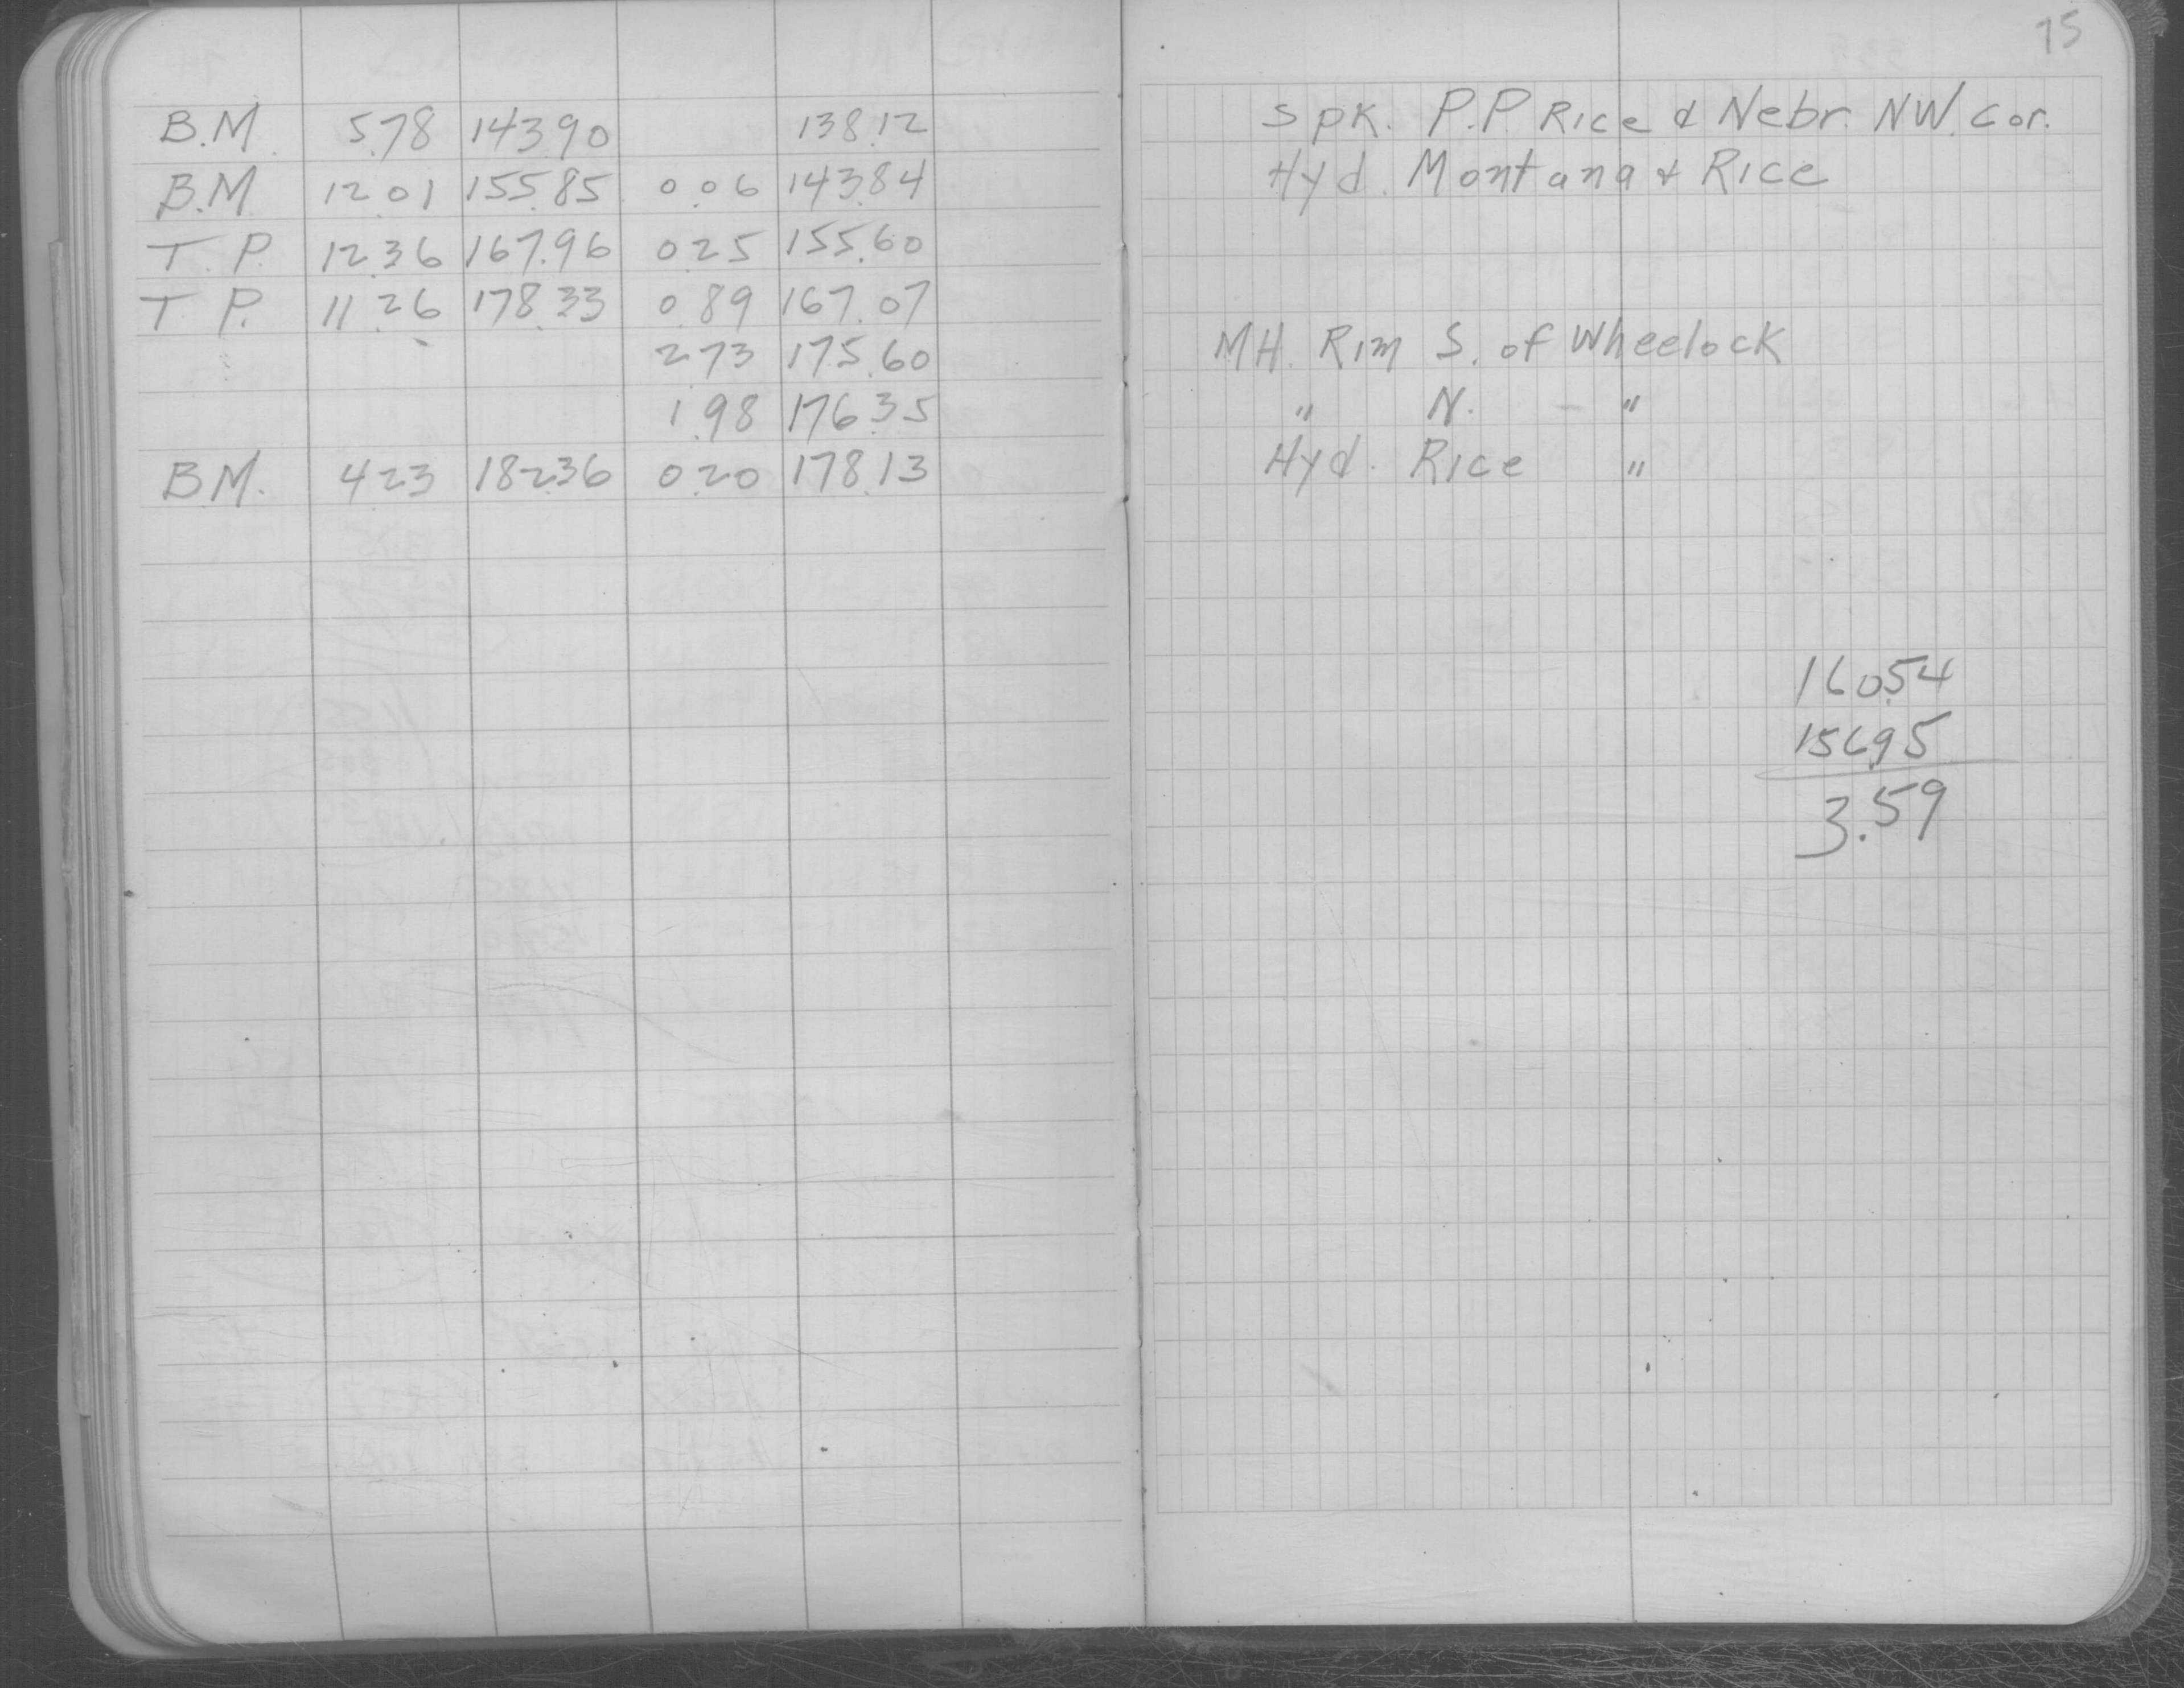 75
B.M. 5.78 143.90 138.12 Spk. P.P. Rice & Nebr. NW. Cor.
B.M. 12.01 155.85 0.06 143.84 Hyd. Montana & Rice
T. P. 12.36 167.96 0.25 155.60
T. P. 11.26 178.33 0.89 167.07
2.73 175.60 MH. Rim S. of Wheelock
1.98 176.35 " N. - "
B.M. 4.23 182.36 0.20 178.13 Hyd. Rice "
160.54
156.95
3.59